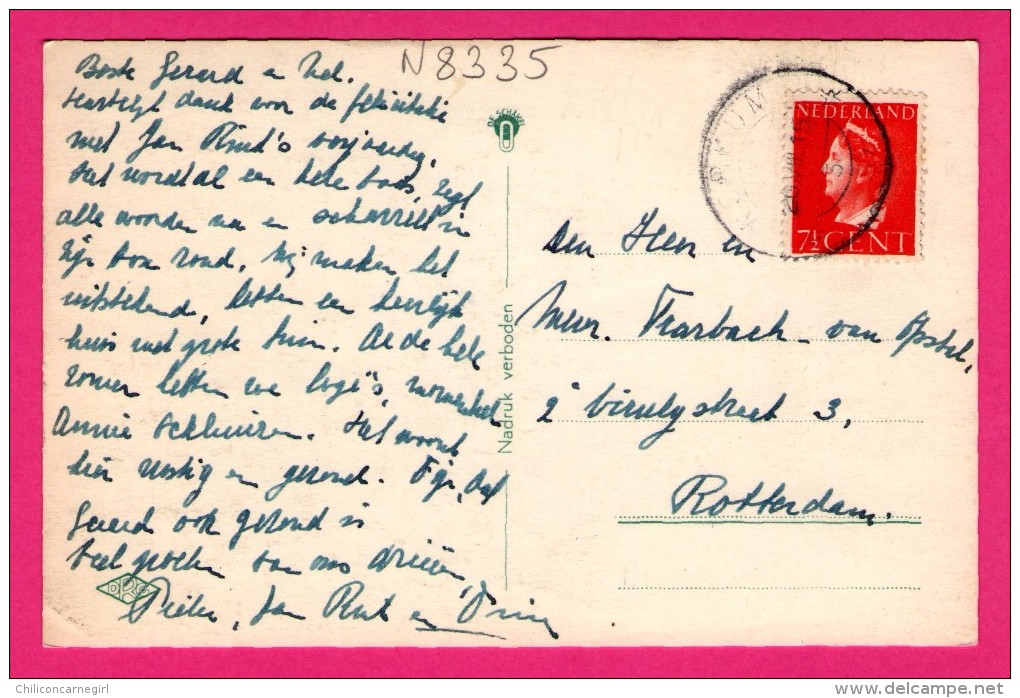 N8335
Beste Gerard en Nel.
Hartelijk dank voor de felicitatie
met Jan Ruut's verjaardag.
Het wordt al een hele baas, zegt
alle woorden na en scharrelt in
zijn box rond. Wij maken het
uitstekend, hebben een heerlijk
huis met grote tuin. Al de hele
zomer hebben we logé's, momenteel
Annie Het woont
hier rustig en gezond. Fijn, dat
Gerard ook gezond is
Veel groeten van ons drieën,
Pieter, Jan Ruut en
DE SCHAKEL
Nadruk verboden
NEDERLAND
7½ CENT
Den Heer en
Mevr. Trarbach - van Opstal,
2e Virulystraat 3,
Rotterdam.
Chiliconcarnegirl
www.delcampe.net